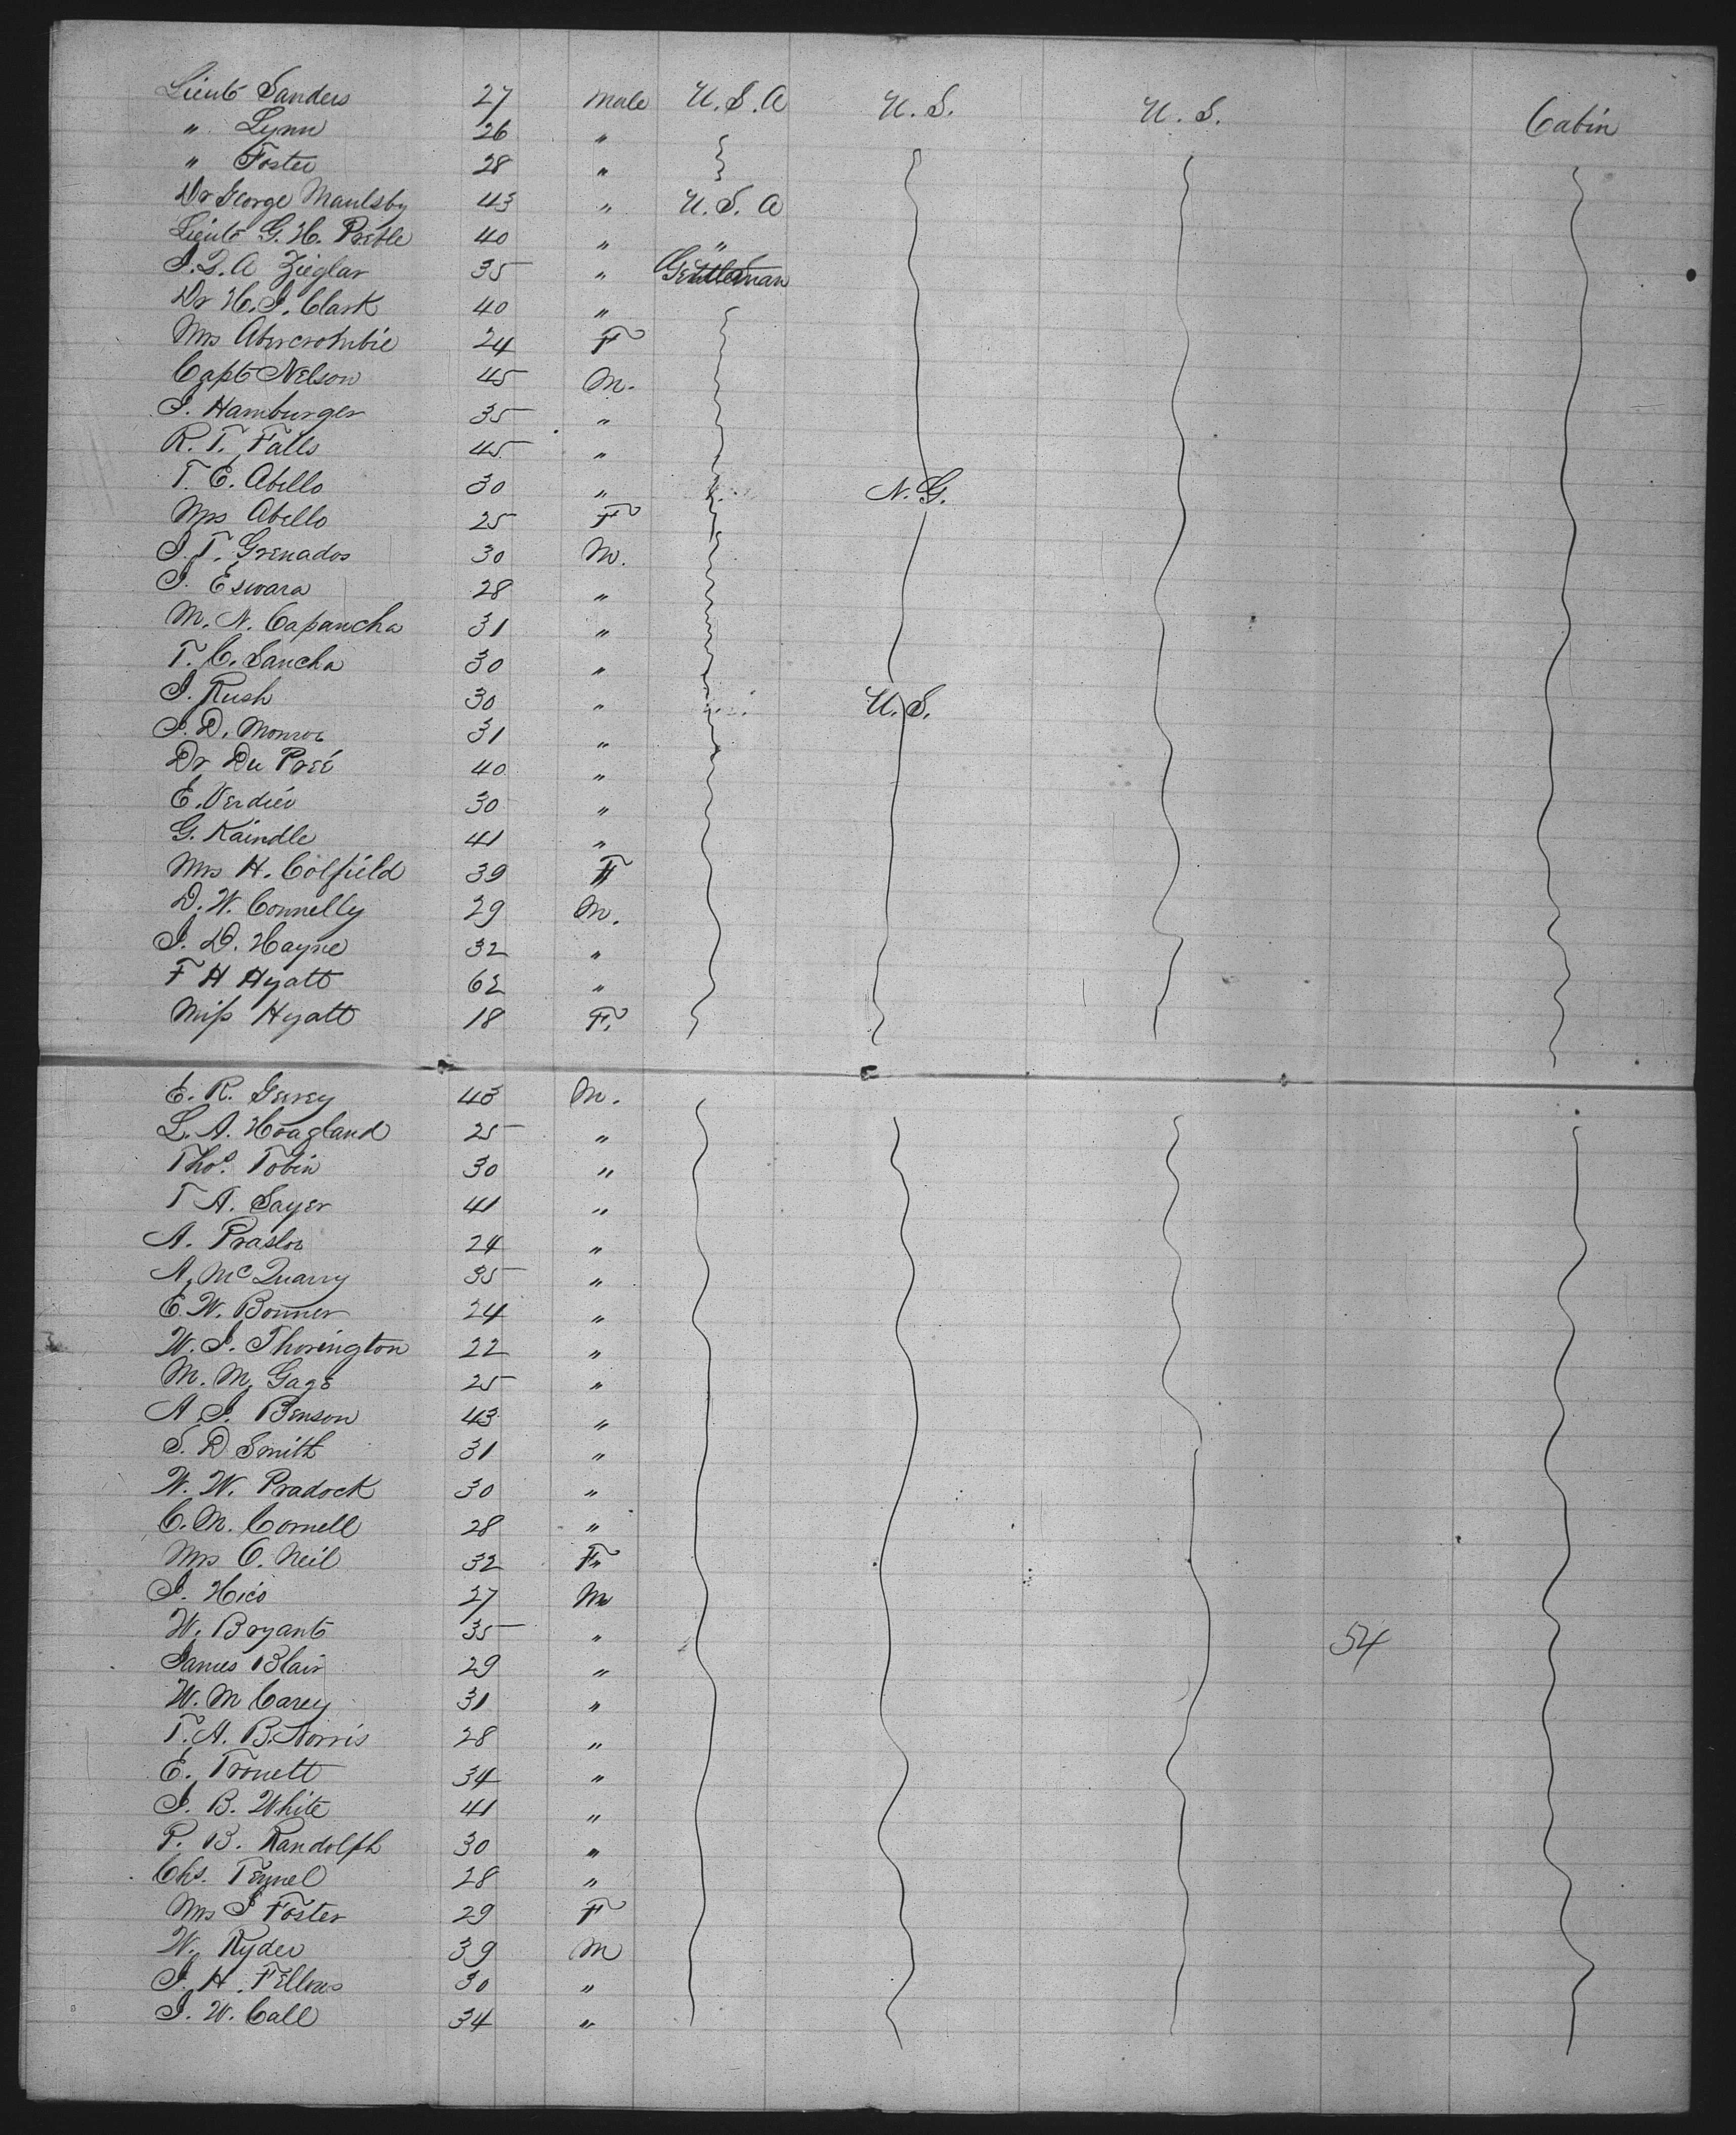 Lieut Sanders 27 Male U.S.A U.S. U.S. Cabin
" Lynn 26 "
" Foster 28 "
Dr George Maulsby 43 " U.S.A
Lieut G. H. Preble 40 " "
J. Q. A Zieglar 35 " Gentleman
Dr H. J. Clark 40 "
Mrs Abercrombie 24 F
Capt Nelson 45 M.
J. Hamburger 35 "
R. T. Falls 45 "
T. E. Abello 30 " N.G.
Mrs Abello 25 F
J. T. Grenados 30 M.
J. Eswara 28 "
M. N. Capancha 31 "
T. C. Sancha 30 "
J. Rush 30 " U.S.
J. D. Monroe 31 "
Dr Du Preé 40 "
E. Verdier 30 "
G. Kaindle 41 "
Mrs H. Colfield 39 F
D. W. Connelly 29 M.
J. D. Hayne 32 "
F H Hyatt 62 "
Miss Hyatt 18 F.
E. R. 43 M.
L. A. Hoagland 25 "
Thos. Tobin 30 "
T A. Sayer 41 "
A. 24 "
A. McQuarry 35 "
E. W. Bonner 24 "
W. J. Thorington 22 "
M. M. Gage 25 "
A J. Benson 43 "
S. D Smith 31 "
W. W. Pradock 30 "
C. M. Cornell 28 "
Mrs O. Neil 32 F"
J. Hico 27 M
W. Bryant 35 " 54
James Blair 29 "
W. M Carey 31 "
T. A. B. Norris 28 "
E. Tronett 34 "
J. B. White 41 "
P. B. Randolph 30 "
Chs. 28 "
Mrs J Foster 29 F
W. Ryder 39 M
J. H. Fellows 30 "
J. W. Call 34 "